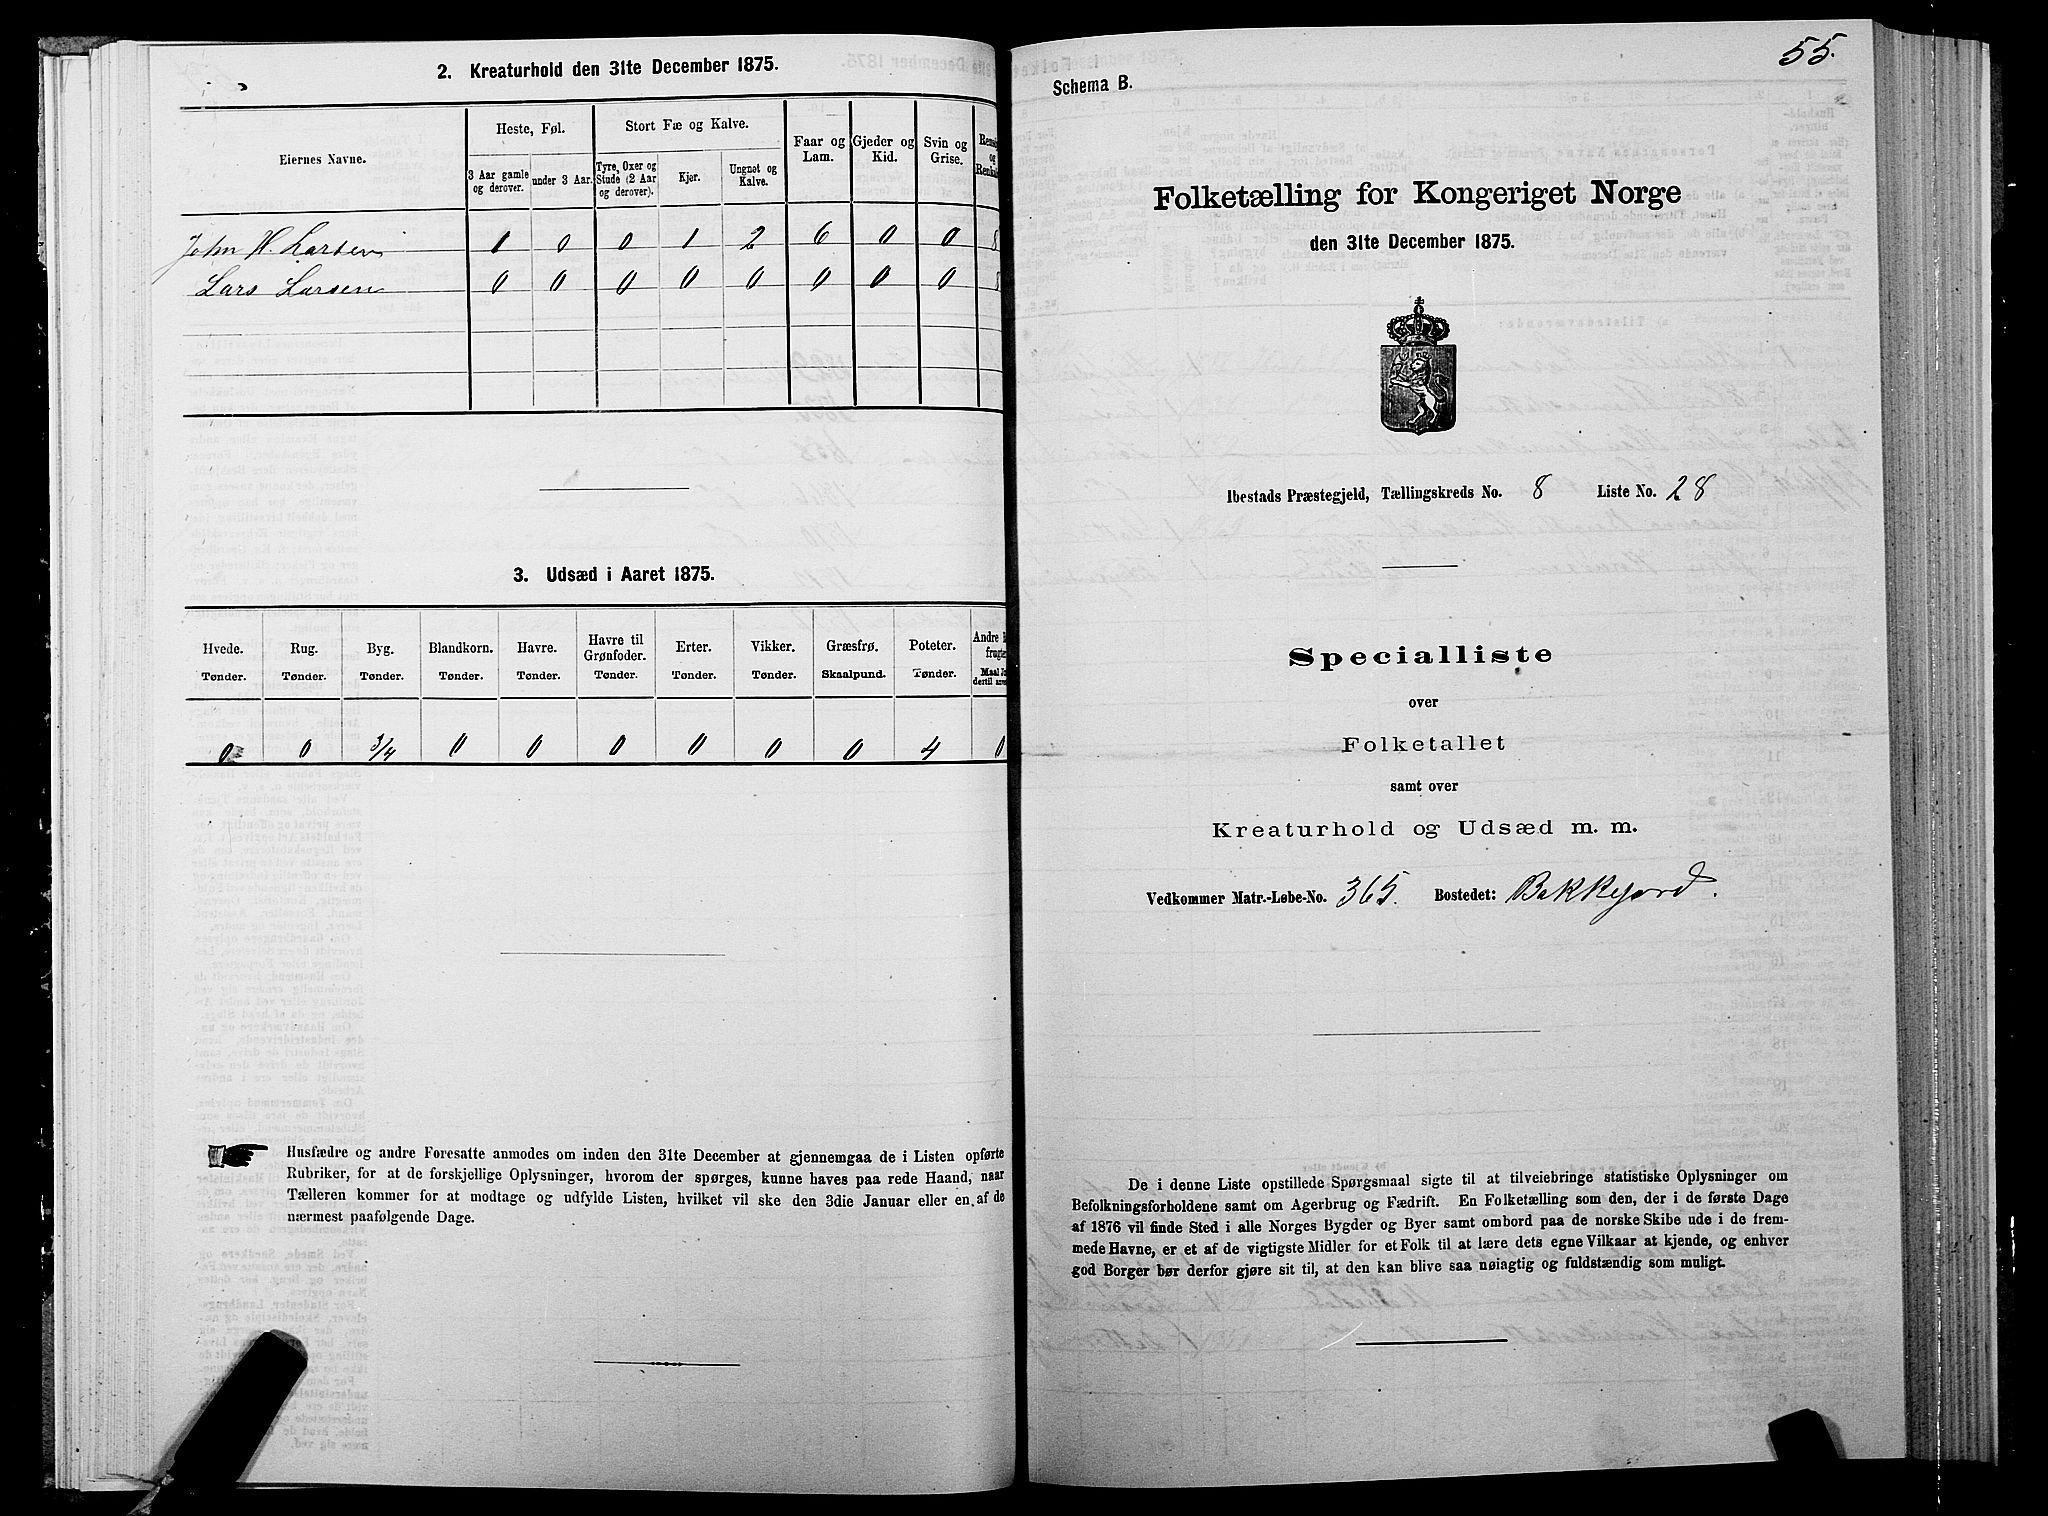 2. Kreaturhold den 31te December 1875.
Eiernes Navne.
Heste, Føl.
Stort Fæ og Kalve.
Faar og Lam.
Gjeder og Kid.
Svin og Grise.
3 Aar gamle og derover.
under 3 Aar.
Tyre, Oxer og Stude (2 Aar og derover).
Kjør.
Ungnøt og Kalve.
John H. Larsen 1 0 0 1 2 6 0 0 8
Lars Larsen 0 0 0 0 0 0 0 0 8
3. Udsæd i Aaret 1875.
Hvede. Rug. Byg. Blandkorn. Havre. Havre til Grønfoder. Erter. Vikker. Græsfrø. Poteter. Andre
Tønder. Tønder. Tønder. Tønder. Tønder. Tønder. Tønder. Tønder. Skaalpund. Tønder.
0 0 3/4 0 0 0 0 0 0 4 0
Husfædre og andre Foresatte anmodes om inden den 31te December at gjennemgaa de i Listen opførte
Rubriker, for at de forskjellige Oplysninger, hvorom der spørges, kunne haves paa rede Haand, naar
Tælleren kommer for at modtage og udfylde Listen, hvilket vil ske den 3die Januar eller en af de
nærmest paafølgende Dage.
55.
Schema B.
Folketælling for Kongeriget Norge
den 31te December 1875.
Ibestads Præstegjeld, Tællingskreds No. 8 Liste No. 28
Specialliste
over
Folketallet
samt over
Kreaturhold og Udsæd m. m.
Vedkommer Matr.-Løbe-No. 365. Bostedet: Bakkejord.
De i denne Liste opstillede Spørgsmaal sigte til at tilveiebringe statistiske Oplysninger om
Befolkningsforholdene samt om Agerbrug og Fædrift. En Folketælling som den, der i de første Dage
af 1876 vil finde Sted i alle Norges Bygder og Byer samt ombord paa de norske Skibe ude i de frem-
mede Havne, er et af de vigtigste Midler for et Folk til at lære dets egne Vilkaar at kjende, og enhver
god Borger bør derfor gjøre sit til, at den kan blive saa nøiagtig og fuldstændig som muligt.